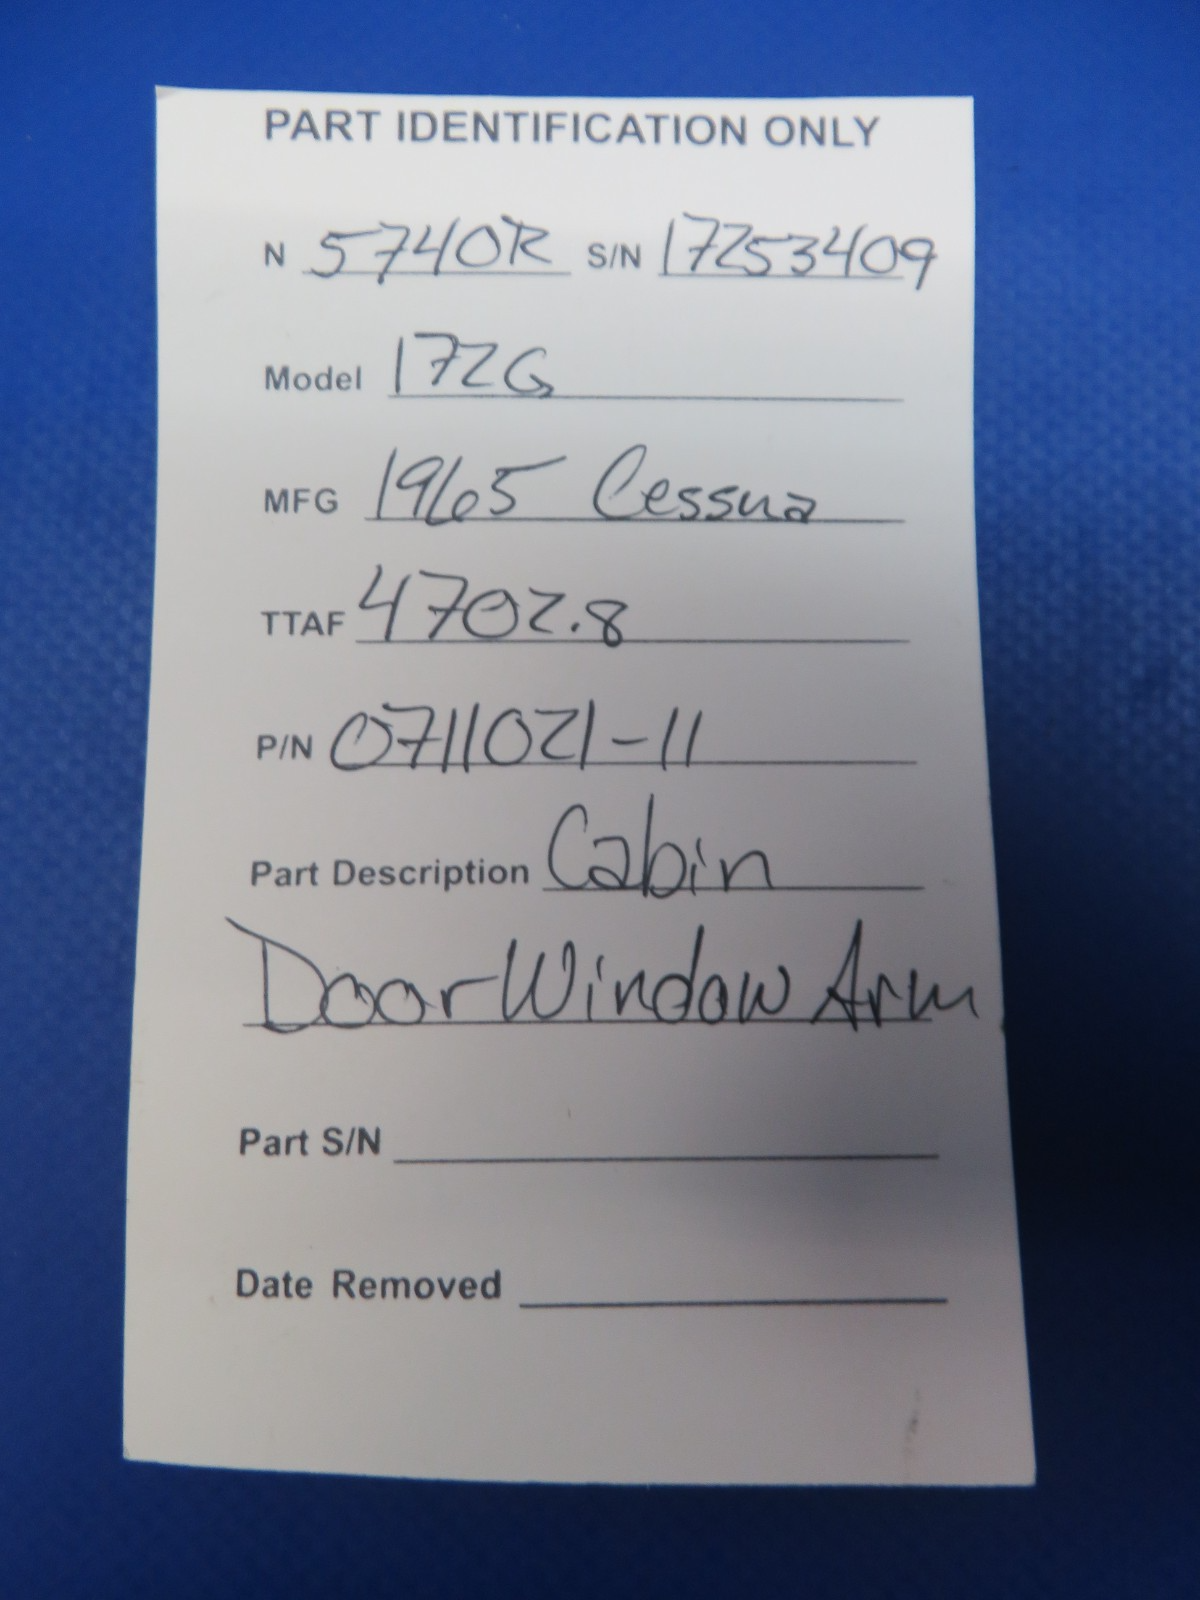 PART IDENTIFICATION ONLY
N 5740R S/N 17253409
Model 172G
MFG 1965 Cessna
TTAF 4702.8
P/N 0711021-11
Part Description Cabin
Door Window Arm
Part S/N
Date Removed